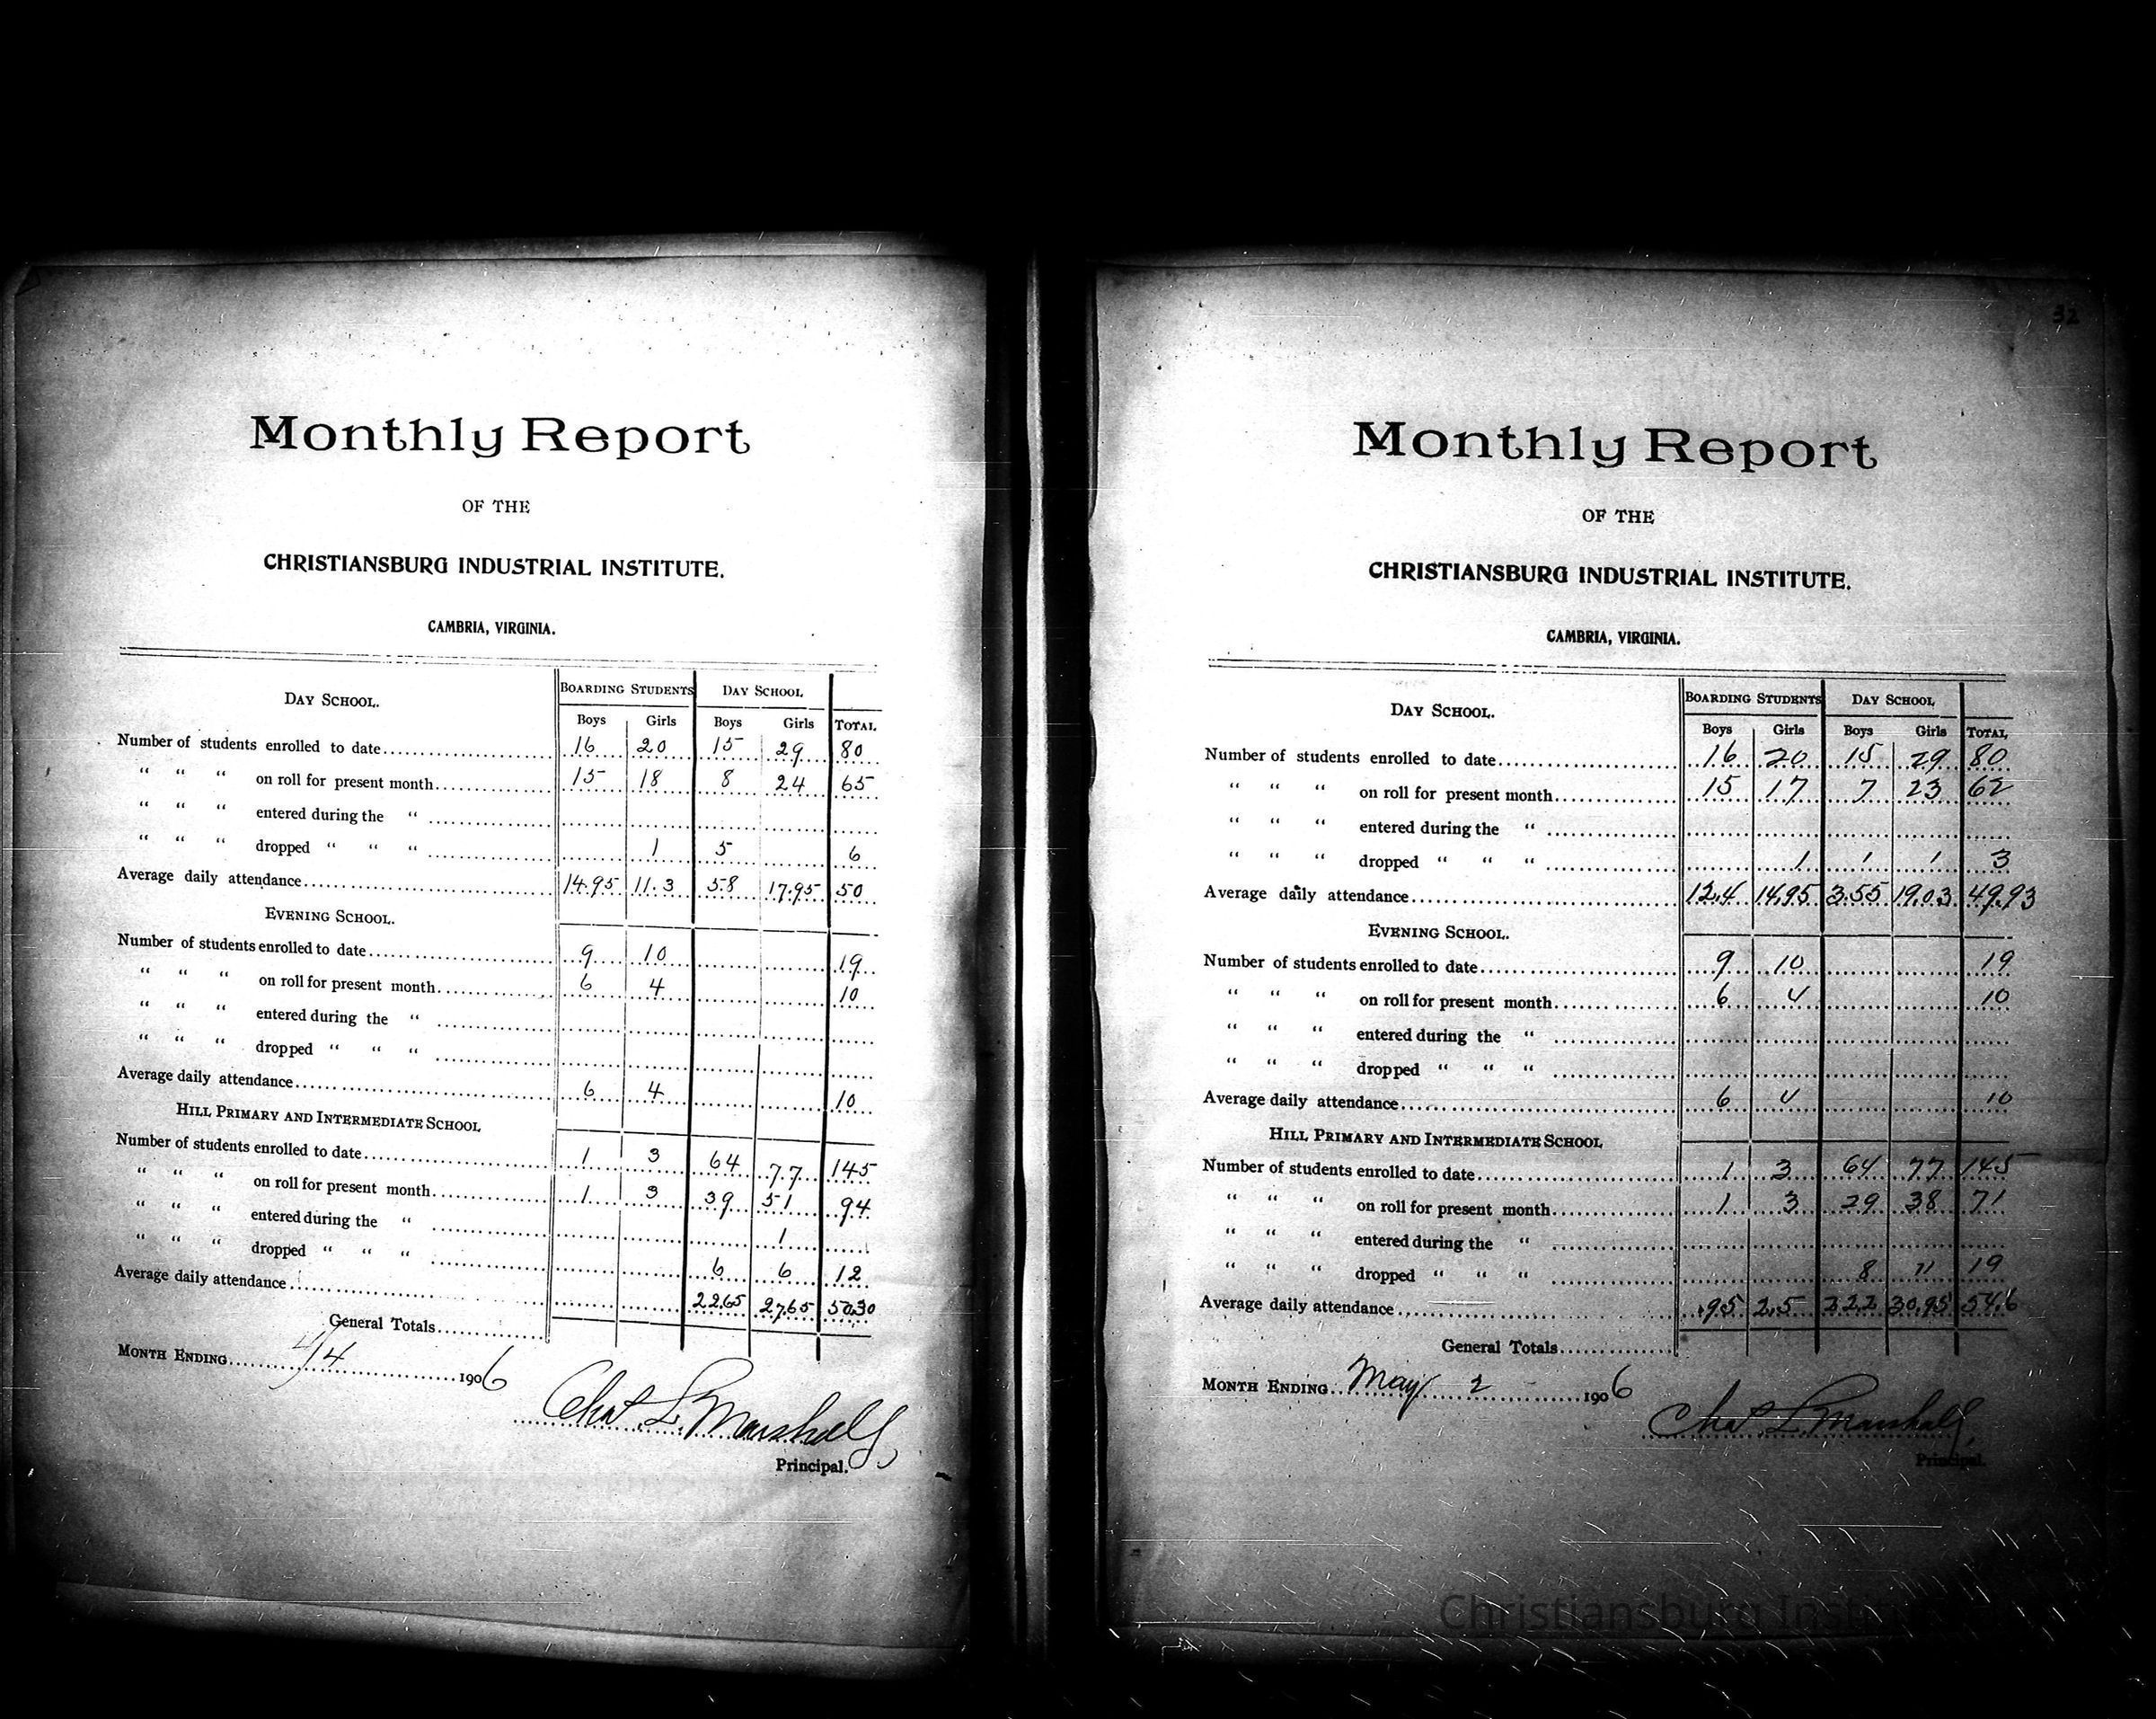 Monthly Report
OF THE
CHRISTIANSBURG INDUSTRIAL INSTITUTE.
CAMBRIA, VIRGINIA.
DAY SCHOOL. BOARDING STUDENTS DAY SCHOOL
Boys Girls Boys Girls TOTAL
Number of students enrolled to date 16 20 15 29 80
" " " on roll for present month 15 18 8 24 65
" " " entered during the "
" " " dropped " " " 1 5 6
Average daily attendance 14.95 11.3 5.8 17.95 50
EVENING SCHOOL.
Number of students enrolled to date 9 10 19
" " " on roll for present month 6 4 10
" " " entered during the "
" " " dropped " " "
Average daily attendance 6 4 10
HILL PRIMARY AND INTERMEDIATE SCHOOL
Number of students enrolled to date 1 3 64 77 145
" " " on roll for present month 1 3 39 51 94
" " " entered during the " 1
" " " dropped " " " 6 6 12
Average daily attendance 22.65 27.65 50.30
General Totals
MONTH ENDING 4/4 1906
Chas L. Marshall
Principal.
32
Monthly Report
OF THE
CHRISTIANSBURG INDUSTRIAL INSTITUTE.
CAMBRIA, VIRGINIA.
DAY SCHOOL. BOARDING STUDENTS DAY SCHOOL
Boys Girls Boys Girls TOTAL
Number of students enrolled to date 16 20 15 29 80
" " " on roll for present month 15 17 7 23 62
" " " entered during the "
" " " dropped " " " 1 1 1 3
Average daily attendance 12.4 14.95 3.55 19.03 49.93
EVENING SCHOOL.
Number of students enrolled to date 9 10 19
" " " on roll for present month 6 4 10
" " " entered during the "
" " " dropped " " "
Average daily attendance 6 4 10
HILL PRIMARY AND INTERMEDIATE SCHOOL
Number of students enrolled to date 1 3 64 77 145
" " " on roll for present month 1 3 29 38 71
" " " entered during the "
" " " dropped " " " 8 11 19
Average daily attendance .95 2.5 30.95 54.6
General Totals
MONTH ENDING May 2 1906
Chas L. Marshall
Principal.
Christiansburg